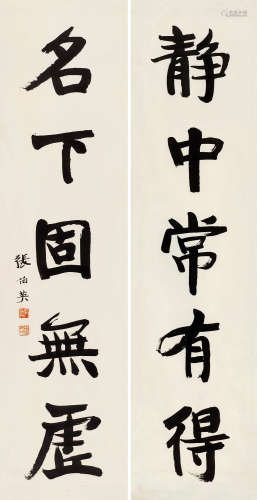 静中常有得
名下固無虛
張伯英